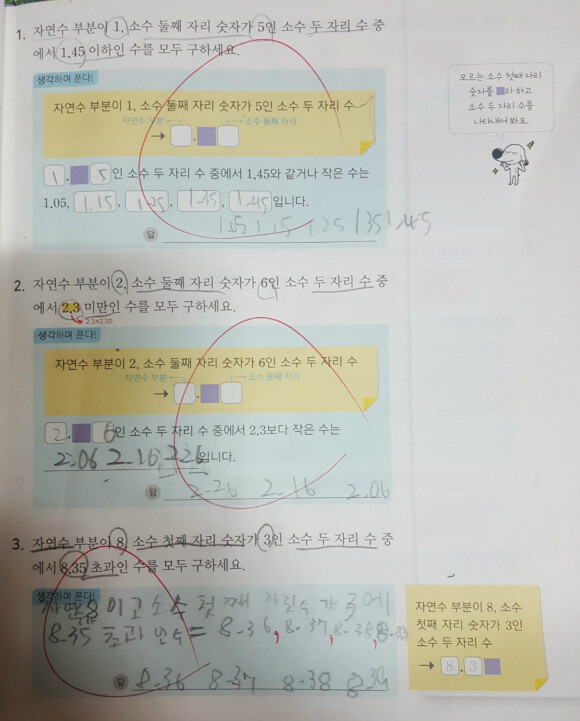 1. 자연수 부분이 1, 소수 둘째 자리 숫자가 5인 소수 두 자리 수 중
에서 1.45 이하인 수를 모두 구하세요.
생각하며 푼다!
자연수 부분이 1, 소수 둘째 자리 숫자가 5인 소수 두 자리 수
자연수 부분 소수 둘째 자리
→ .
1 . 5 인 소수 두 자리 수 중에서 1.45와 같거나 작은 수는
1.05, 1.15, 1.25, 1.35, 1.45 입니다.
답 1.05 1.15 1.25 1.35 1.45
모르는 소수 첫째 자리
숫자를 ■라 하고
소수 두 자리 수를
나타내어 봐요.
2. 자연수 부분이 2, 소수 둘째 자리 숫자가 6인 소수 두 자리 수 중
에서 2.3 미만인 수를 모두 구하세요.
2.3=2.30
생각하며 푼다!
자연수 부분이 2, 소수 둘째 자리 숫자가 6인 소수 두 자리 수
자연수 부분 소수 둘째 자리
→ .
2 . 6 인 소수 두 자리 수 중에서 2.3보다 작은 수는
2.06 2.16 2.26 입니다.
답 2.26 2.16 2.06
3. 자연수 부분이 8, 소수 첫째 자리 숫자가 3인 소수 두 자리 수 중
에서 8.35 초과인 수를 모두 구하세요.
생각하며 푼다!
이고 소수 첫째 자리수가 3에
8.35 초과 인수= 8.36, 8.37, 8.38, 8.39
답 8.36 8.37 8.38 8.39
자연수 부분이 8, 소수
첫째 자리 숫자가 3인
소수 두 자리 수
→ 8 . 3